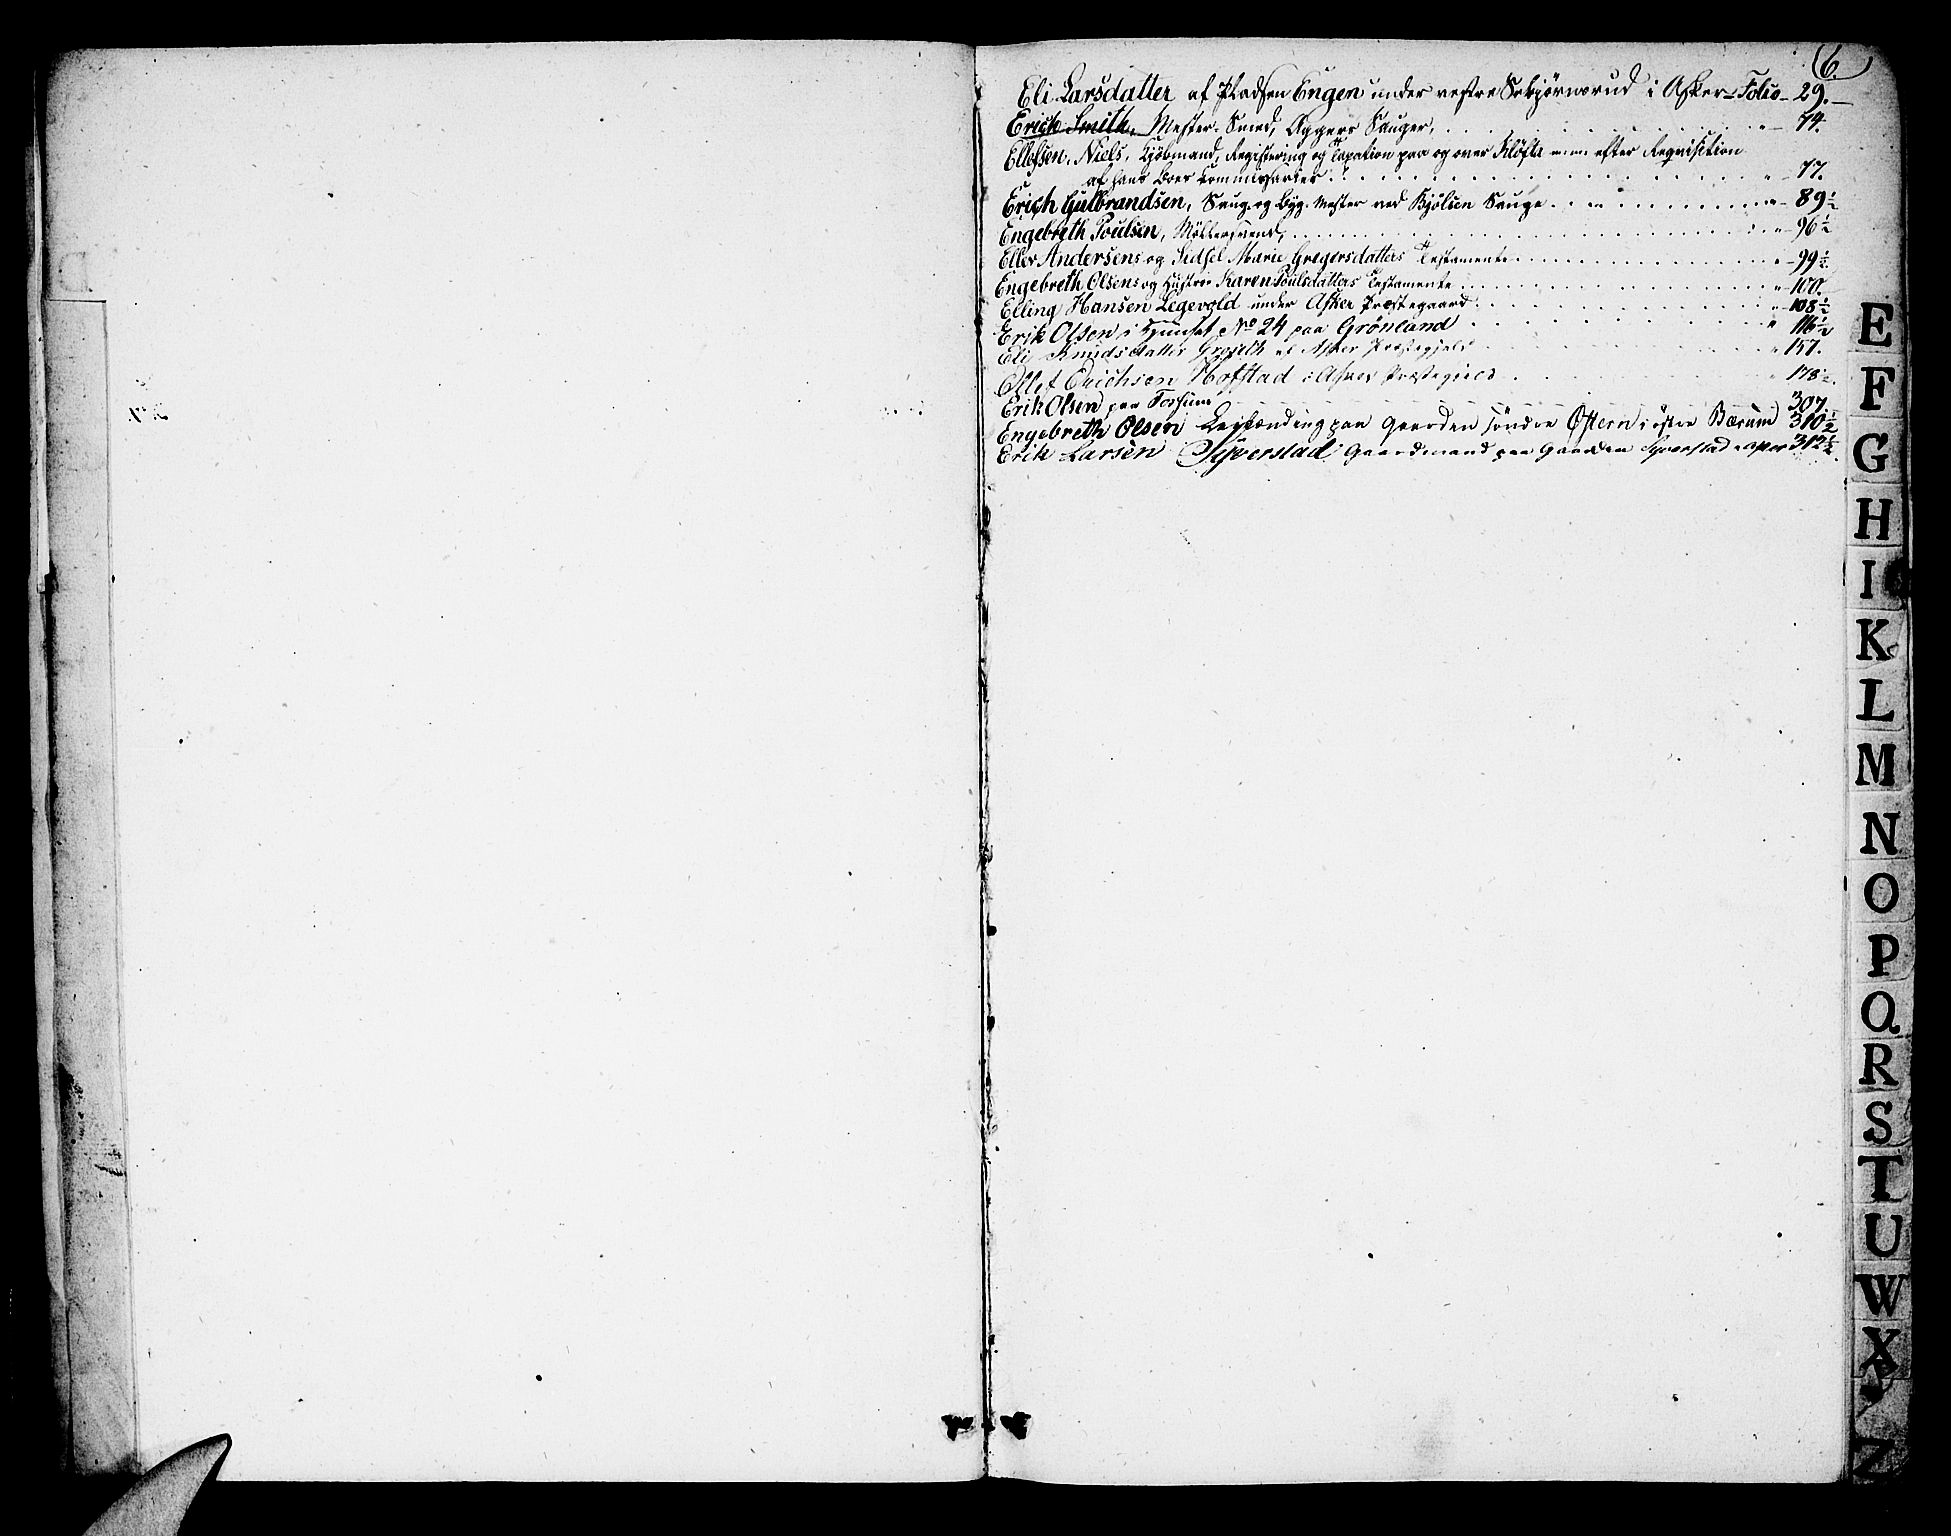 6.
Eli Larsdatter af Pladsen Engen under vestre i Asker - Folio - 29.
Erick Smith, Mester-Smed, Aggers Sauger, " - 74.
Ellefsen, Niels, Kjöbmand, Registering og Taxation paa og over Klöfta efter Reqvisition
af hans Boes Commissarier " - 77.
Erich Gulbrandsen, Saug- og Byg-Mester ved Kjölsen Sauge " - 89½
Engebreth Poulsen, Möllersvend, " - 96½
Ellev Andersens og Sidsel Marie Gregersdatters Testamente " - 99½
Engebreth Olsens og Hustrue Karen Poulsdatters Testamente " - 100.
Elling Hansen Legevold under Asker Præstegaard " - 108½
Erik Olsen i Huuset No 24 paa Grönland " 116½
Eli Knudsdatter af Asker Præstegjeld " 157.
Ellef Erichsen Hofstad i Asker Præstegield " 178½.
Erik Olsen paa Fossum 307.
Engebreth Olsen paa Gaarden söndre Östern i östre Bærum 310½
Erik Larsen Syverstad Gaardmand paa Gaarden Syverstad i Asker 312½
E
F
G
H
I
K
L
M
N
O
P
Q
R
S
T
U
W
X
Z